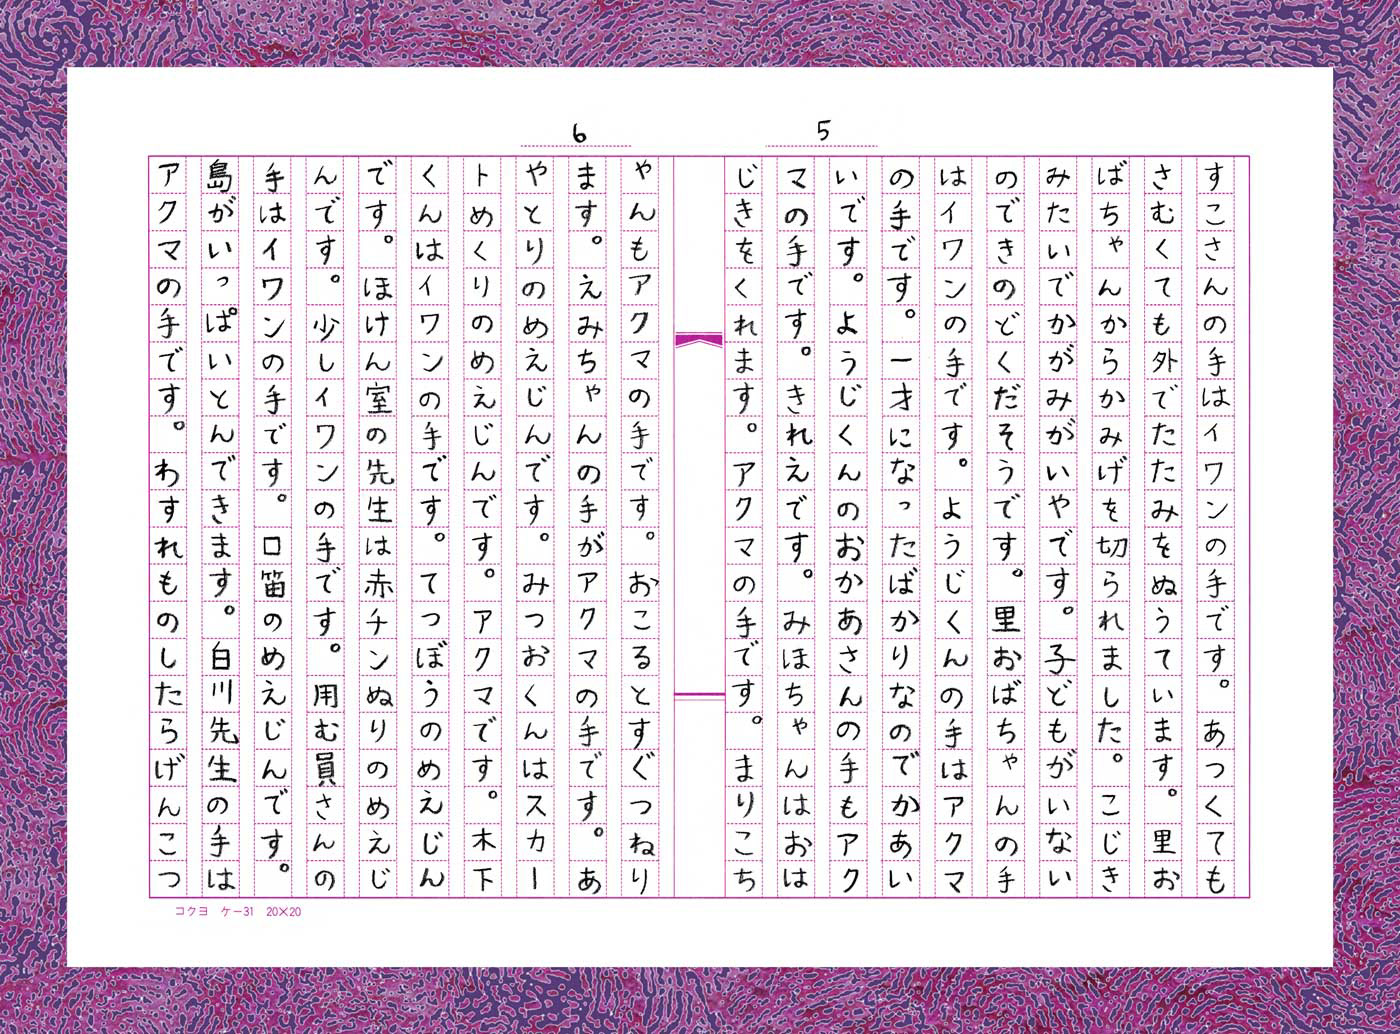 5
すこさんの手はイワンの手です。あつくても
さむくても外でたたみをぬうています。里お
ばちゃんからかみげを切られました。こじき
みたいでかがみがいやです。子どもがいない
のできのどくだそうです。里おばちゃんの手
はイワンの手です。ようじくんの手はアクマ
の手です。一才になったばかりなのでかあい
いです。ようじくんのおかあさんの手もアク
マの手です。きれえです。みほちゃんはおは
じきをくれます。アクマの手です。まりこち
6
ゃんもアクマの手です。おこるとすぐつねり
ます。えみちゃんの手がアクマの手です。あ
やとりのめえじんです。みつおくんはスカー
トめくりのめえじんです。アクマです。木下
くんはイワンの手です。てつぼうのめえじん
です。ほけん室の先生は赤チンぬりのめえじ
んです。少しイワンの手です。用む員さんの
手はイワンの手です。口笛のめえじんです。
島がいっぱいとんできます。白川先生の手は
アクマの手です。わすれものしたらげんこつ
コクヨ ケー31 20×20